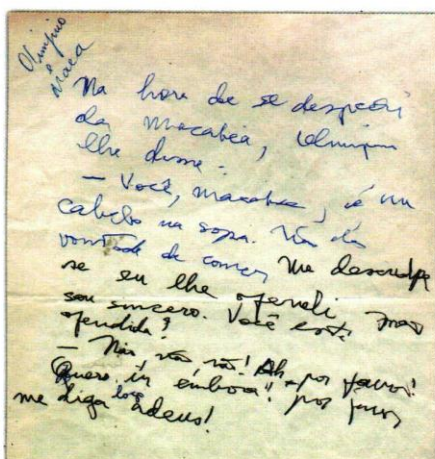 Olimpico
e maca
Na hora de se despedir
da Macabéa, Olimpico
lhe disse:
— Você, Macabéa, é um
cabelo na sopa. Não dá
vontade de comer. Me desculpe
se eu lhe ofendi, mas
sou sincero. Você está
ofendida?
— Não, não, não! Ah, por favor!
Quero ir embora! por favor
me diga logo adeus!